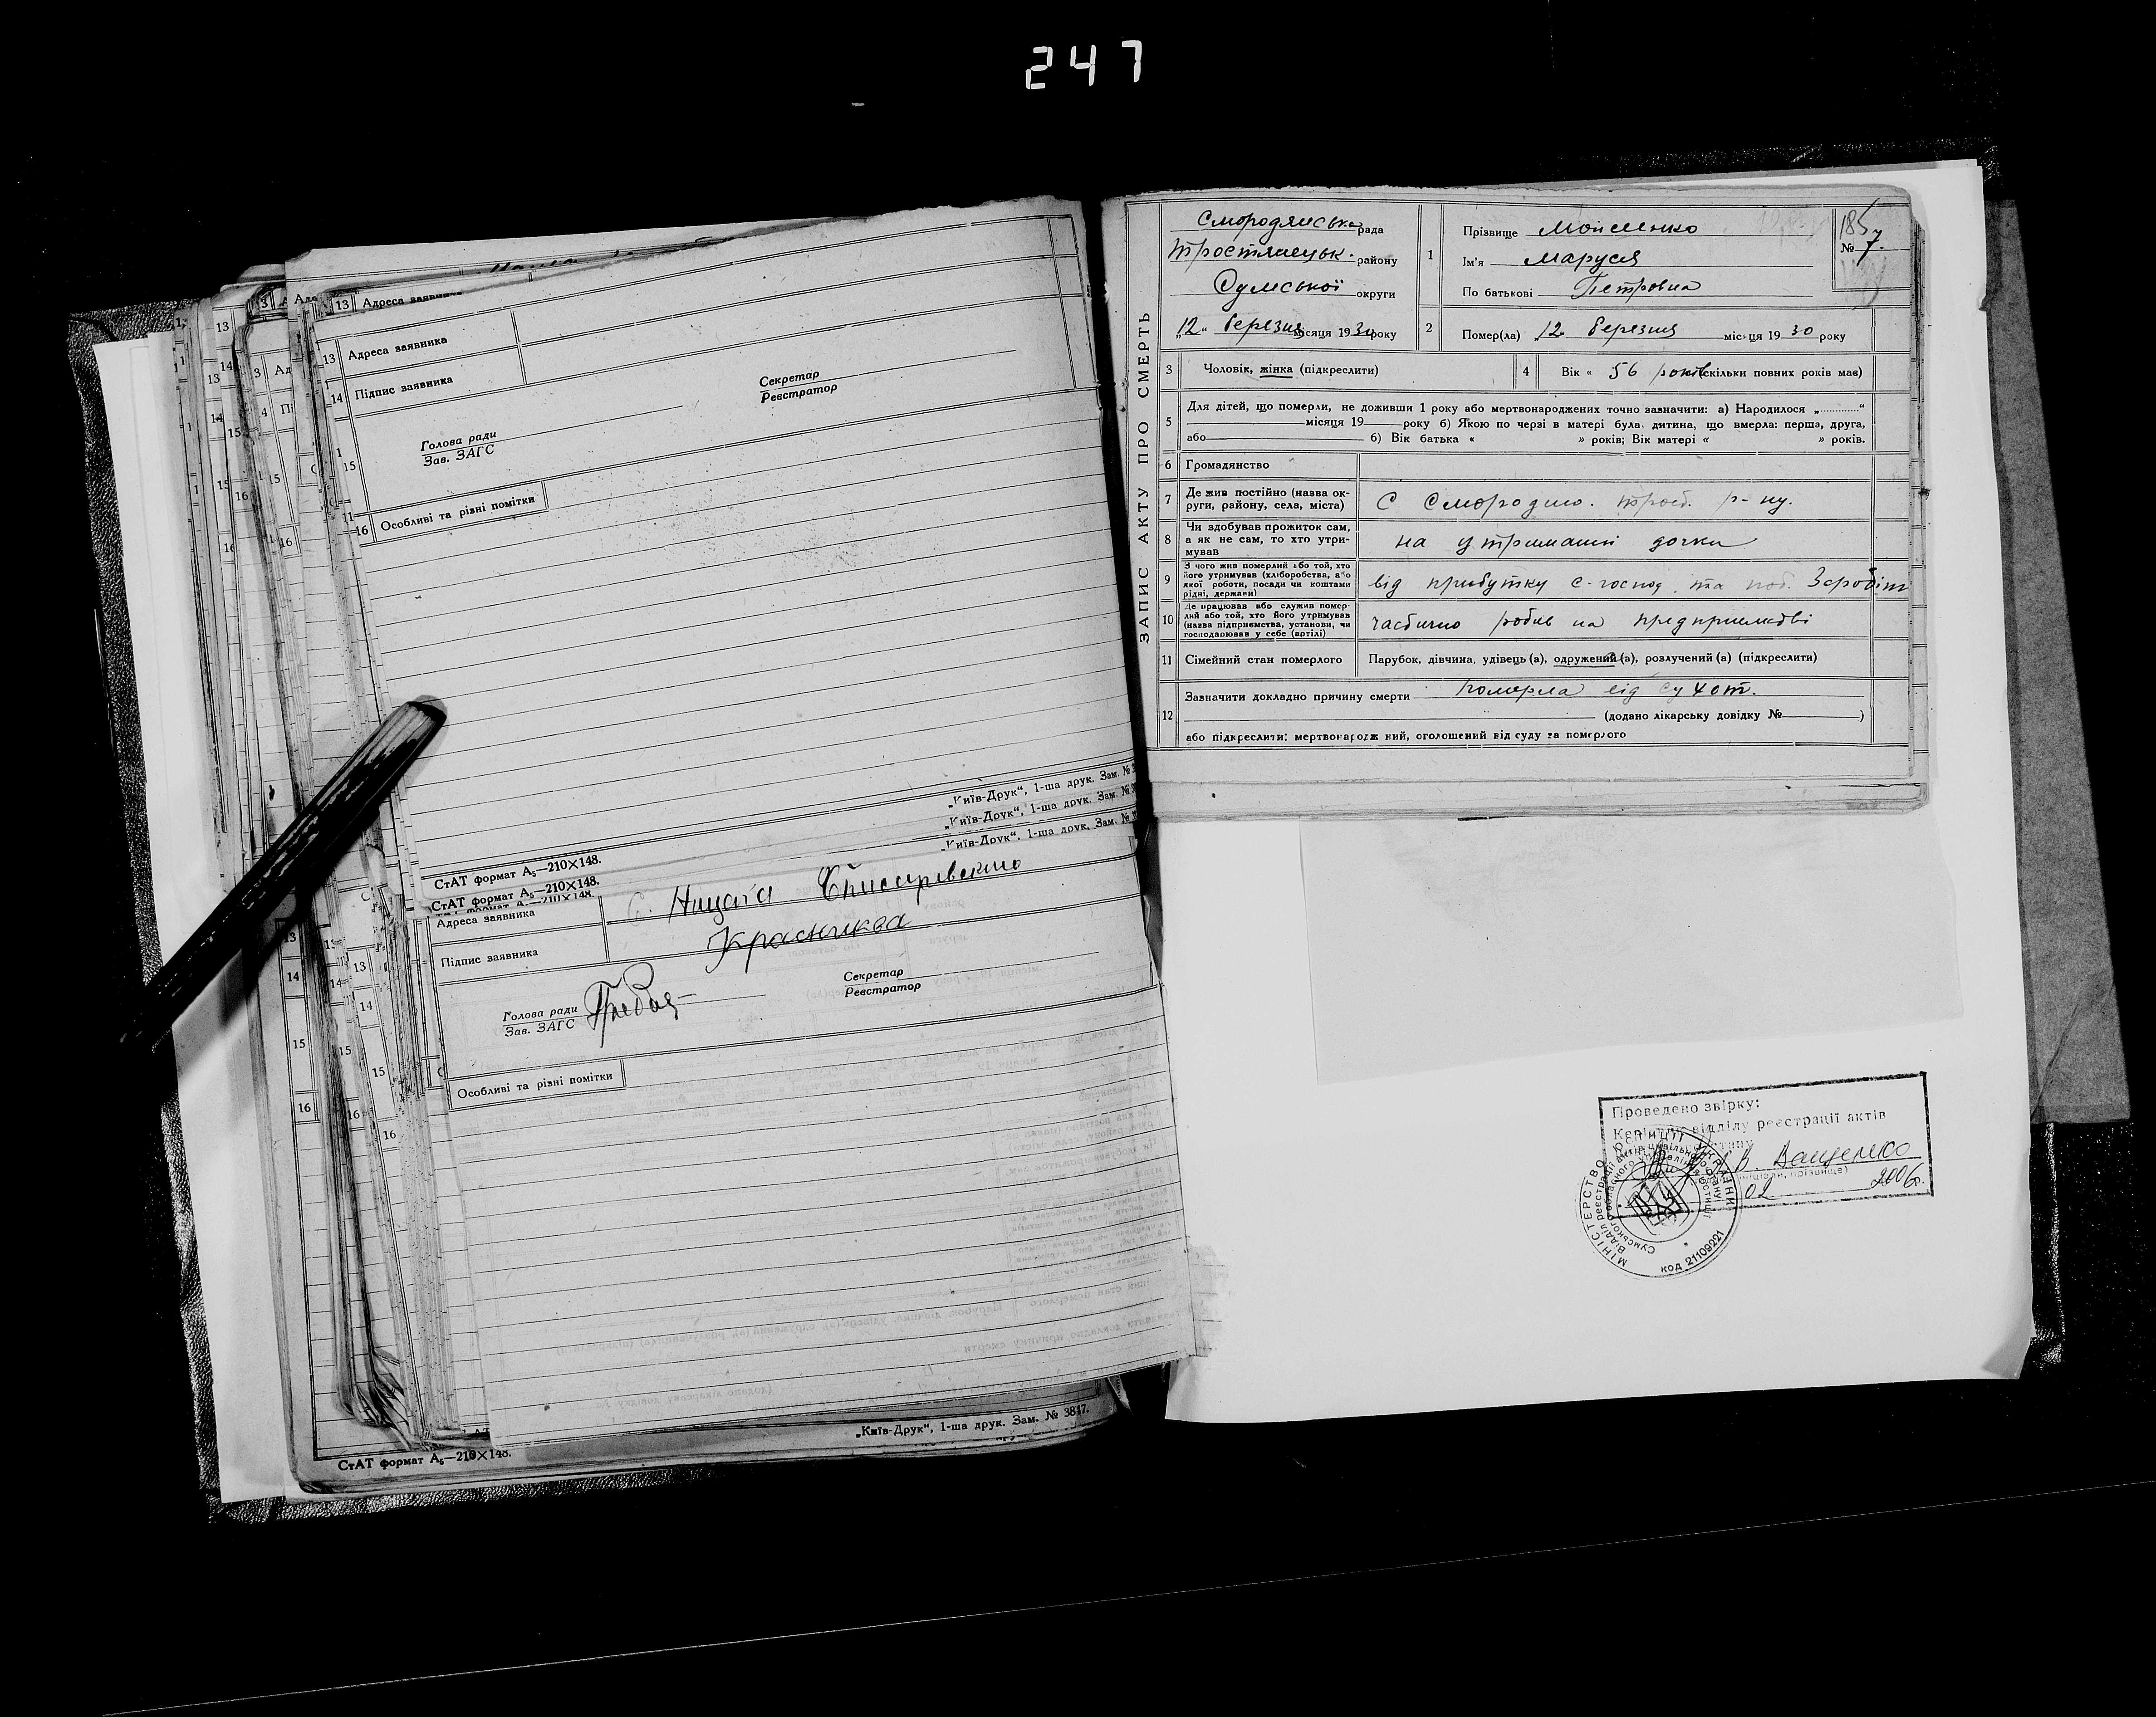 247
13 Адреса заявника
13 Адреса заявника
14 Підпис заявника
Секретар
Реєстратор
Голова ради
Зав. ЗАГС
15
16 Особливі та різні помітки
„Київ-Друк“, 1-ша друк. Зам. №
„Київ-Друк“, 1-ша друк. Зам. №
„Київ-Друк“, 1-ша друк. Зам. №
СтАТ формат А₅—210×148.
СтАТ формат А₅—210×148.
Адреса заявника
Підпис заявника
Красникова
Секретар
Реєстратор
Голова ради
Зав. ЗАГС
Особливі та різні помітки
„Київ-Друк“, 1-ша друк. Зам. № 3817.
СтАТ формат А₅—210×148.
ЗАПИС АКТУ ПРО СМЕРТЬ
Смородянська рада
Тростянецьк. району
Сумської округи
„12“ березня місяця 1930 року
1 Прізвище Мойсиенко
Ім'я Маруся
По батькові Петровна
185
№ 7.
2 Помер(ла) „12“ березня місяця 1930 року
3 Чоловік, жінка (підкреслити)
4 Вік « 56 років (скільки повних років має)
5 Для дітей, що померли, не доживши 1 року або мертвонароджених точно зазначити: а) Народилося „............“
місяця 19 року б) Якою по черзі в матері була дитина, що вмерла: перша, друга,
або б) Вік батька « » років; Вік матері « » років.
6 Громадянство
7 Де жив постійно (назва округи, району, села, міста) С Смородино. трост. р-ну.
8 Чи здобував прожиток сам, а як не сам, то хто утримував на утриманні дочки
9 З чого жив померлий або той, хто його утримував (хліборобства, або якої роботи, посади чи коштами рідні, держави) від прибутку с-господ. та поб. Заробіт
10 Де працював або служив померлий або той, хто його утримував (назва підприємства, установи, чи господарював у себе (артілі) частично робив на предприємстві
11 Сімейний стан померлого Парубок, дівчина, удівець (а), одружений (а), розлучений (а) (підкреслити)
12 Зазначити докладно причину смерти померла від сухот.
(додано лікарську довідку № )
або підкреслити: мертвонароджений, оголошений від суду за померлого
Проведено звірку:
Керівник відділу реєстрації актів
В. Ващенко
02 2006р.
МІНІСТЕРСТВО ЮСТИЦІЇ УКРАЇНИ
код 21109221